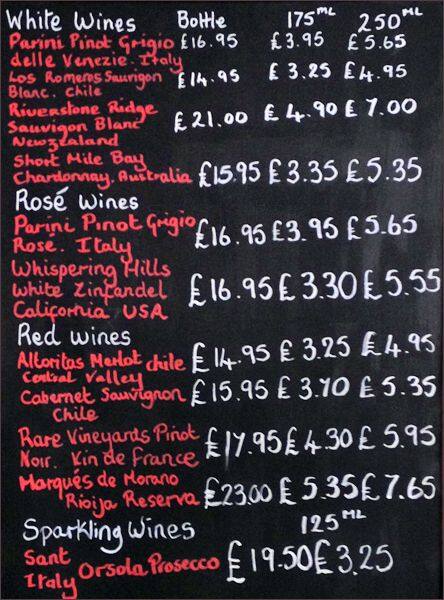 White Wines Bottle 175ML 250ML
Parini Pinot Grigio £16.95 £3.95 £5.65
delle Venezie. Italy
Los Romeros Sauvignon £14.95 £3.25 £4.95
Blanc. Chile
Riverstone Ridge £21.00 £4.90 £7.00
Sauvignon Blanc
Newzealand
Short Mile Bay
Chardonnay. Australia £15.95 £3.35 £5.35
Rosé Wines
Parini Pinot Grigio £16.95 £3.95 £5.65
Rose. Italy
Whispering Hills
White Zinfandel £16.95 £3.30 £5.55
California USA
Red Wines
Altoritas Merlot chile £14.95 £3.25 £4.95
Central Valley
Cabernet Sauvignon £15.95 £3.70 £5.35
Chile
Rare Vineyards Pinot £17.95 £4.30 £5.95
Noir. Vin de France
Marqués de Morano
Rioja Reserva £23.00 £5.35 £7.65
Sparkling Wines 125ML
Sant Orsola Prosecco £19.50 £3.25
Italy